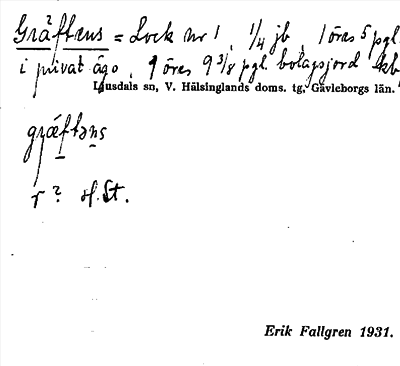 Gräftæns = Lock nr 1, 1/4 jb, 1 öres 5 pgl.
i privat ägo, 9 öres 9 3/8 pgl. bolagsjord kb
Ljusdals sn, V. Hälsinglands doms. tg, Gävleborgs län.
gräftəns
r? H.St.
Erik Fallgren 1931.